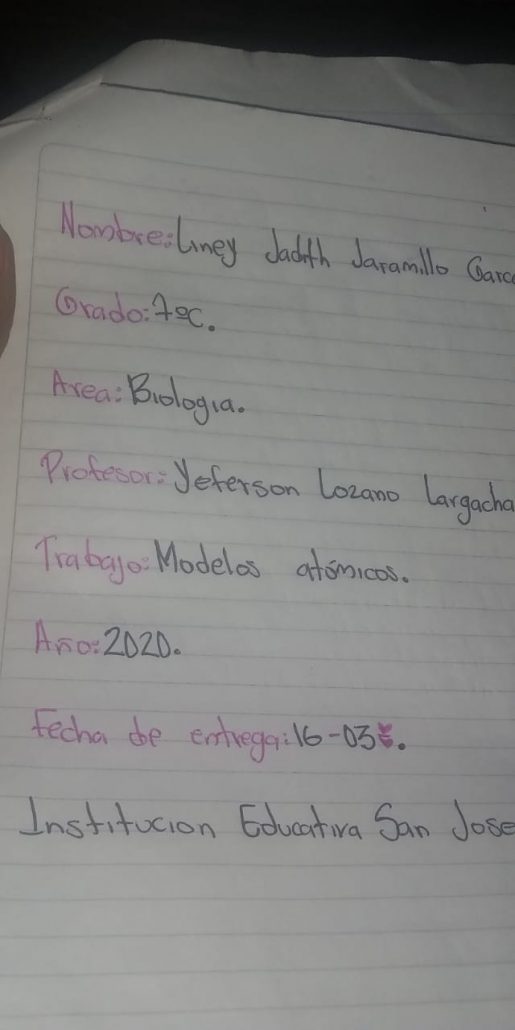 Nombre: Liney Jadith Jaramillo Garc
Grado: 7ºC.
Area: Biologia.
Profesor: Yeferson Lozano Largacha
Trabajo: Modelos atómicos.
Año: 2020.
Fecha de entrega: 16-03.
Institucion Educativa San Jose